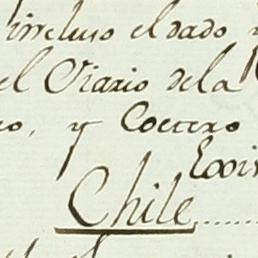 incluso el dado
el Diario de la
co, y Coetero
Chile